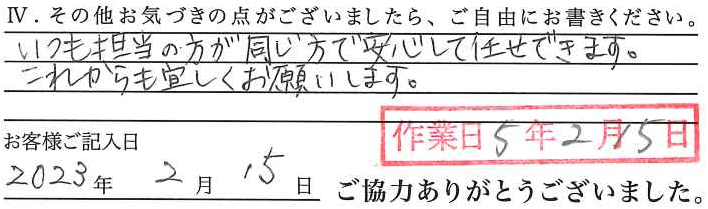 Ⅳ．その他お気づきの点がございましたら、ご自由にお書きください。
いつも担当の方が同じ方で安心して任せできます。
これからも宜しくお願いします。
作業日5年2月15日
お客様ご記入日
2023年 2月 15日 ご協力ありがとうございました。